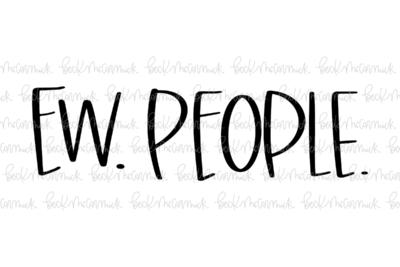 EW. PEOPLE.